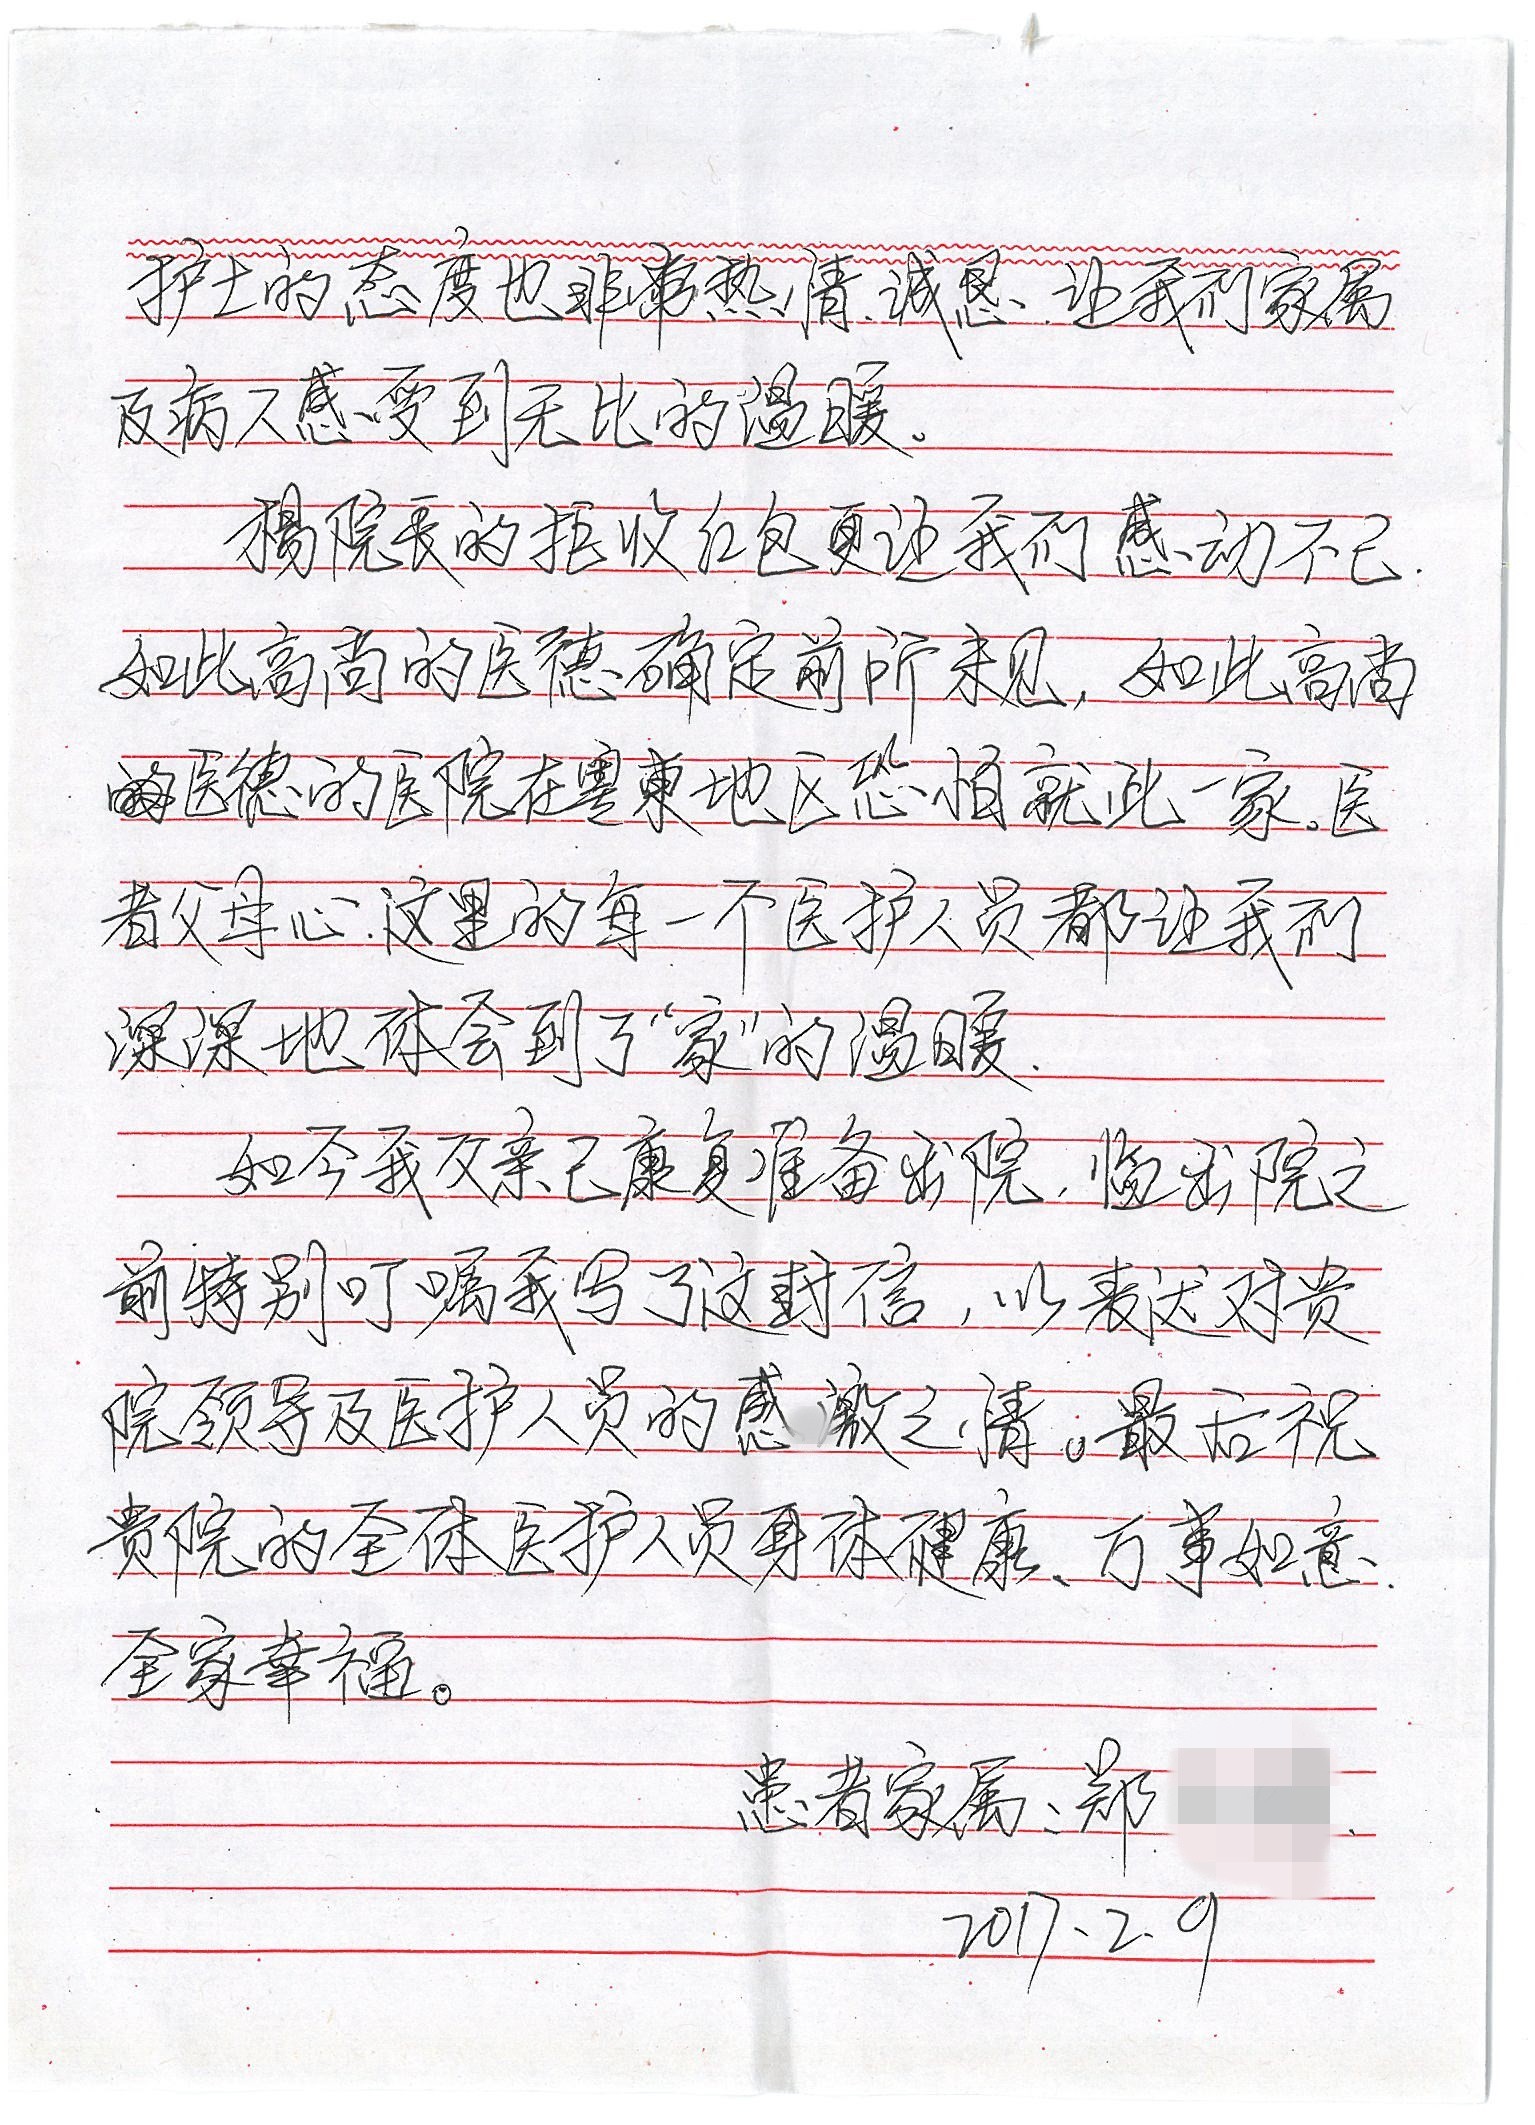 护士的态度也非常热情、诚恳、让我们家属
及病人感受到无比的温暖。
杨院长的拒收红包更让我们感动不已.
如此高尚的医德确定前所未见，如此高尚
的医德的医院在粤东地区恐怕就此一家。医
者父母心.这里的每一个医护人员都让我们
深深地体会到了“家”的温暖.
如今我父亲已康复准备出院，临出院之
前特别叮嘱我写了这封信，以表达对贵
院领导及医护人员的感激之情。最后祝
贵院的全体医护人员身体健康、万事如意.
全家幸福。
患者家属：郑
2017.2.9